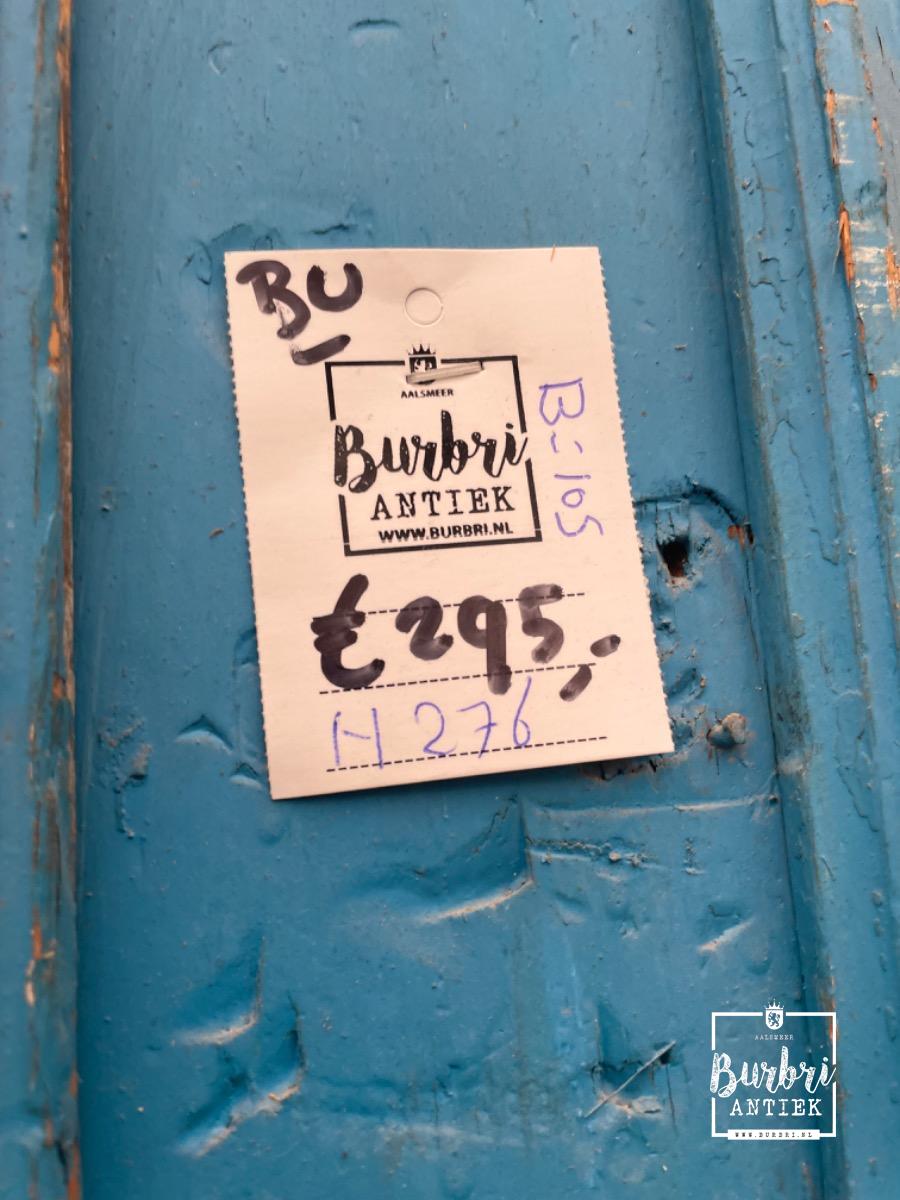 BU
AALSMEER
Burbri
ANTIEK
WWW.BURBRI.NL
B=105
€295,-
H 276
AALSMEER
Burbri
ANTIEK
WWW.BURBRI.NL